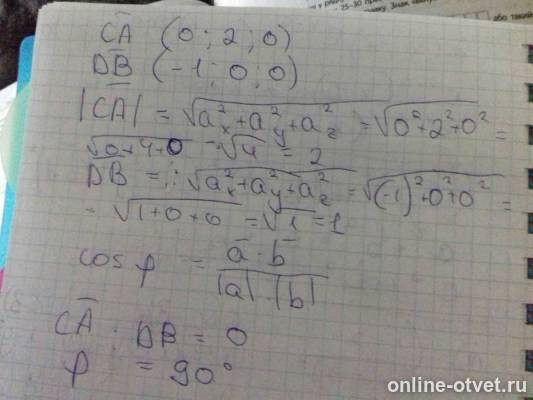 CA (0; 2; 0)
DB (-1; 0; 0)
|CA| = √(aₓ² + a_y² + a_z²) = √(0² + 2² + 0²) =
√(0+4+0) = √4 = 2
DB = √(aₓ² + a_y² + a_z²) = √((-1)² + 0² + 0²) =
= √(1+0+0) = √1 = 1
cos φ = a · b / |a| · |b|
CA · DB = 0
φ = 90°
online-otvet.ru